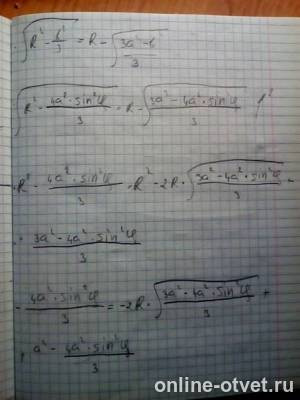 √(R² - b²/3) = R - √((3a² - b)/3)
√(R² - (4a²·sin²φ)/3) = R - √((3a² - 4a²·sin²φ)/3) |²
R² - (4a²·sin²φ)/3 = R² - 2R·√((3a² - 4a²·sin²φ)/3) +
+ (3a² - 4a²·sin²φ)/3
- (4a²·sin²φ)/3 = -2R·√((3a² - 4a²·sin²φ)/3) +
+ a² - (4a²·sin²φ)/3
online-otvet.ru